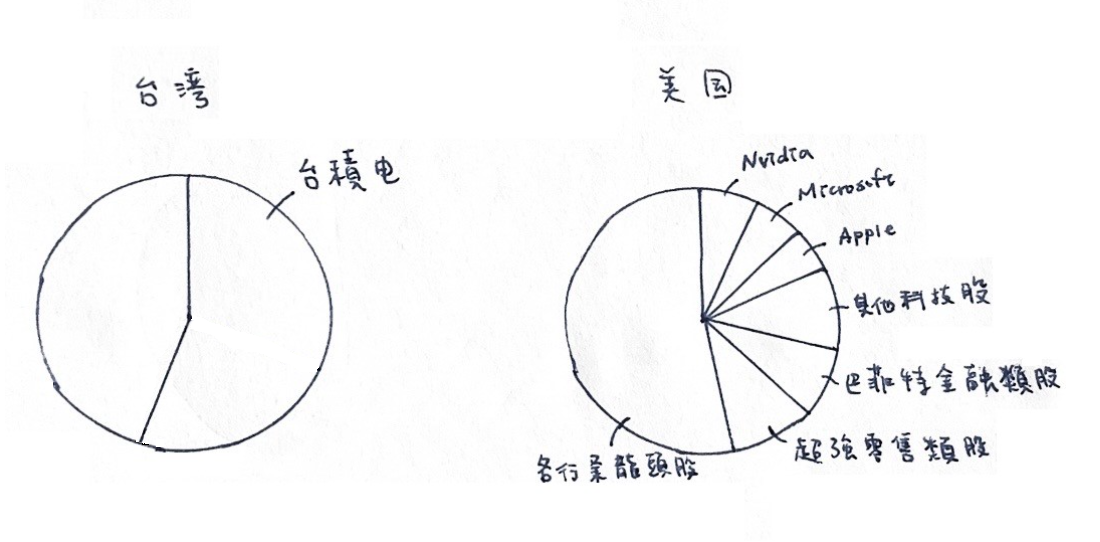 台湾
台積电
美国
Nvidia
Microsoft
Apple
其他科技股
巴菲特金融類股
超強零售類股
各行業龍頭股